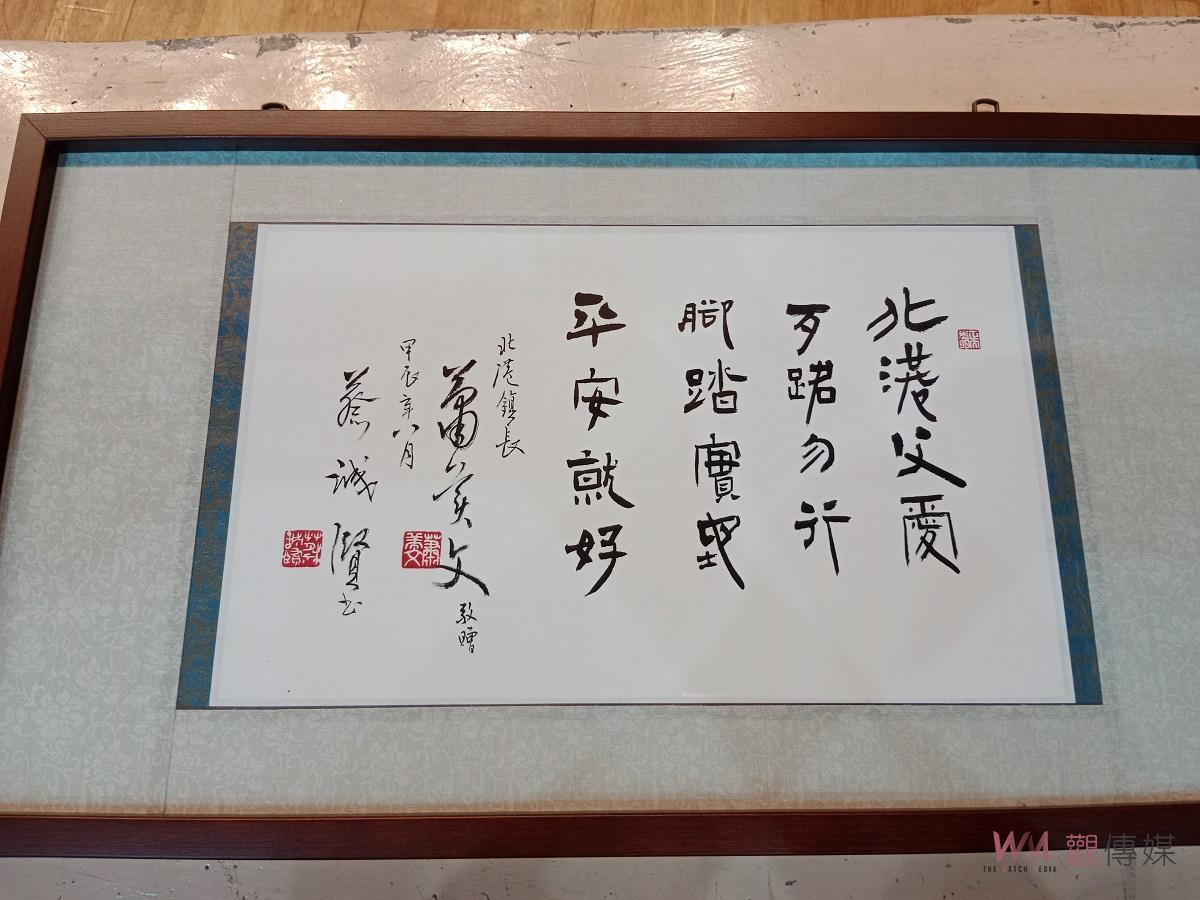 北港父愛
歹路勿行
腳踏實地
平安就好
北港鎮長
蕭美文
敬贈
甲辰年八月
蔡誠賢書
觀傳媒
THE WATCH MEDIA